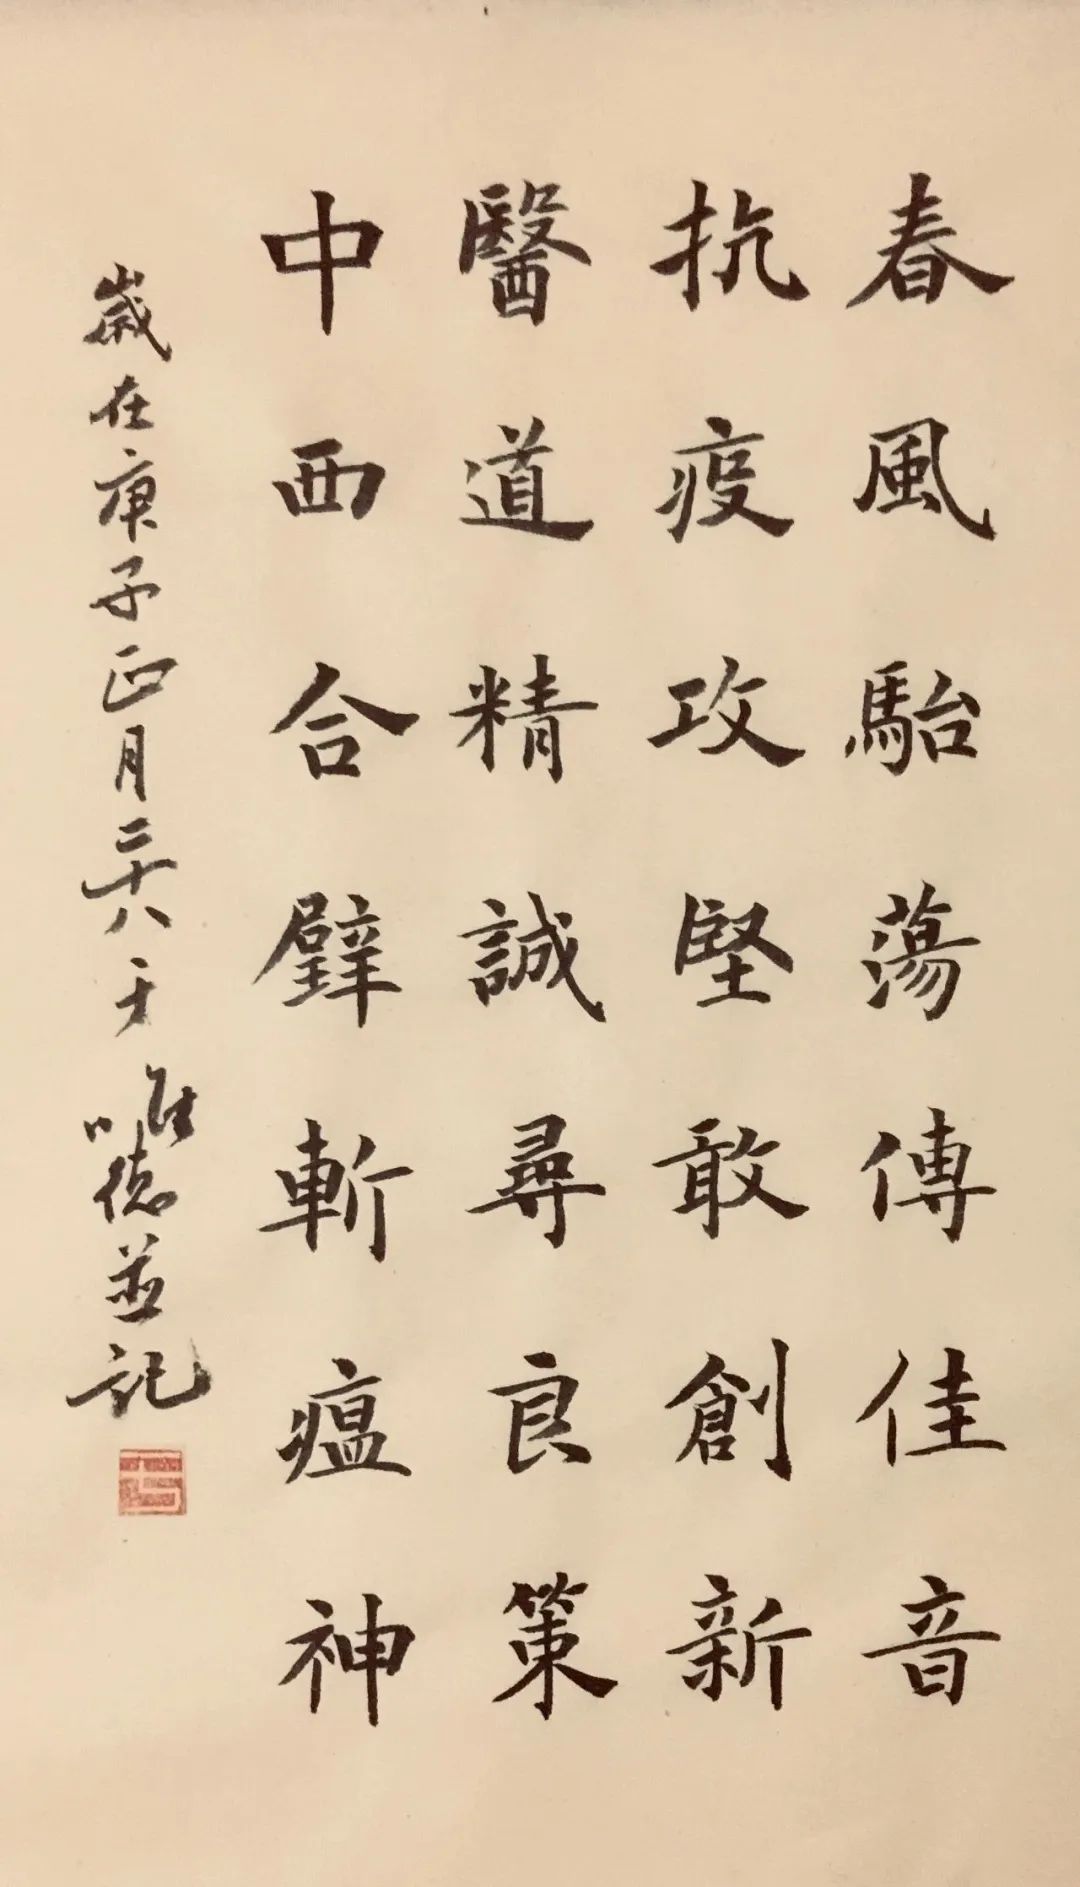 春風駘蕩傳佳音
抗疫攻堅敢創新
醫道精誠尋良策
中西合璧斬瘟神
歲在庚子正月二十八于 唯德並記